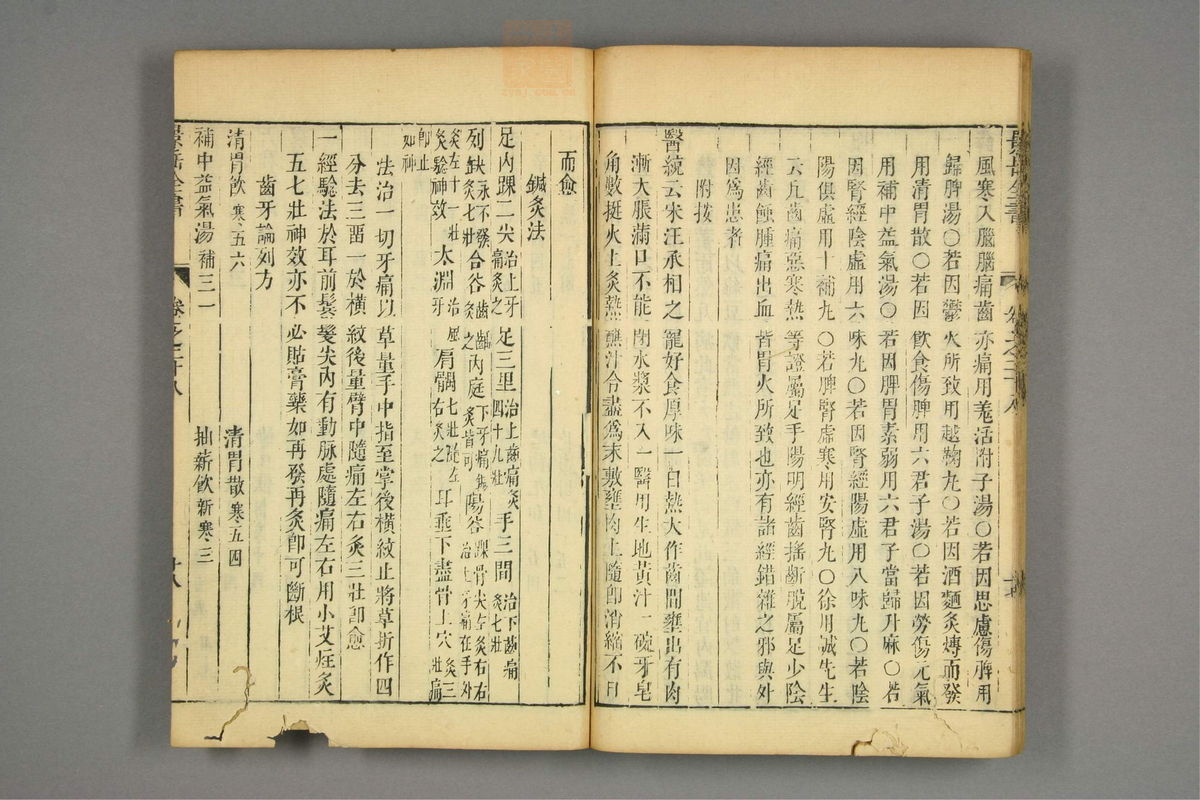 景岳全書
卷之二十八
風寒入腦腦痛齒亦痛用羗活附子湯○若因思慮傷脾用
歸脾湯○若因鬱火所致用越鞠丸○若因酒麵炙煿而發
用清胃散○若因飲食傷脾用六君子湯○若因勞傷元氣
用補中益氣湯○若因脾胃素弱用六君子當歸升麻○若
因腎經陰虛用六味丸○若因腎經陽虛用八味丸○若陰
陽俱虛用十補丸○若脾腎虛寒用安腎丸○徐用誠先生
云凡齒痛惡寒熱等證屬足手陽明經齒搖斷脫屬足少陰
經齒蝕腫痛出血皆胃火所致也亦有諸經錯雜之邪與外
因爲患者
附按
醫統云宋汪丞相之寵好食厚味一日熱大作齒間壅出有肉
漸大脹滿口不能閉水漿不入一醫用生地黃汁一碗牙皂
角數挺火上炙熱蘸汁令盡爲末敷壅肉上隨卽消縮不日
而愈
鍼灸法
足內踝二尖治上牙痛灸之 足三里治上齒痛灸四十九壯 手三間治下齒痛灸七壯
列缺永不發灸七壯 合谷齒齲灸之 內庭下牙痛灸皆可 陽谷踝骨尖左灸右右灸左十一壯 太淵治風牙灸驗神效 肩髃七壯隨左右灸之 耳垂下盡骨上穴灸三壯痛卽止如神
法治一切牙痛以草量手中指至掌後橫紋止將草折作四
分去三畱一於橫紋後量臂中隨痛左右灸三壯卽愈
一經驗法於耳前鬢髮尖內有動脉處隨痛左右用小艾炷灸
五七壯神效亦不必貼膏藥如再發再灸卽可斷根
齒牙論列方
清胃飲寒五六 清胃散寒五四
補中益氣湯補三一 抽薪飲新寒三
景岳全書
卷之二十八